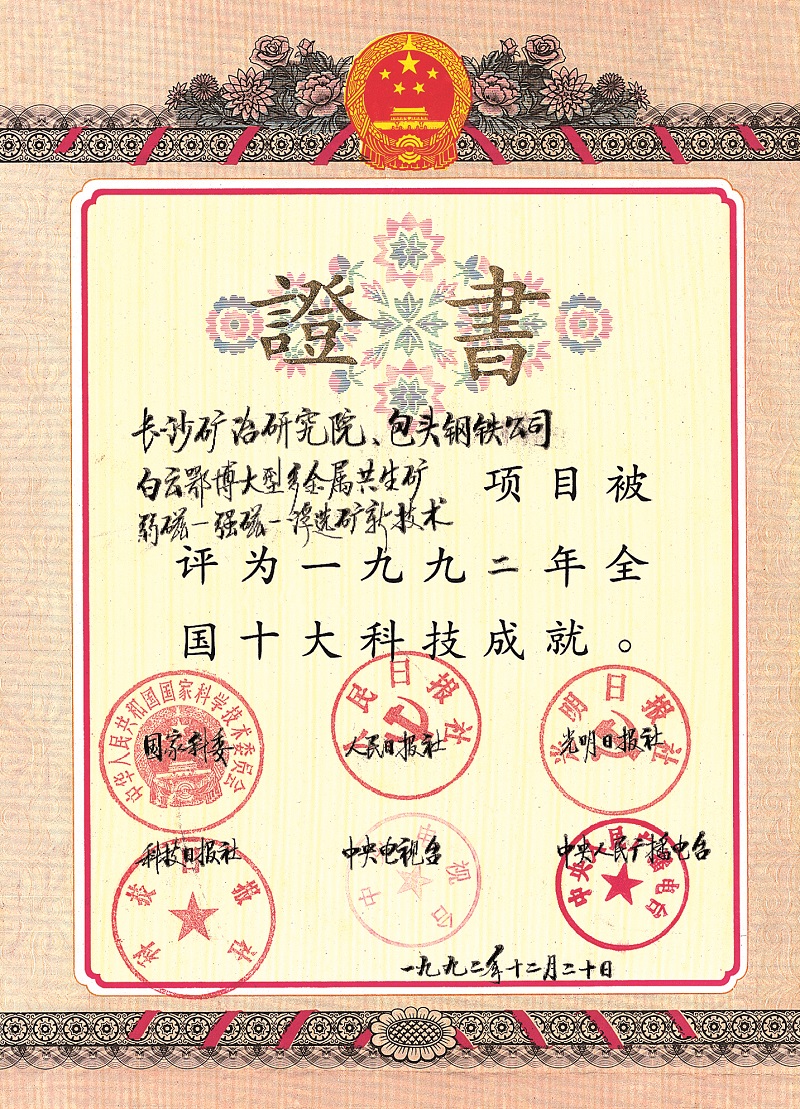 證書
长沙矿冶研究院、包头钢铁公司
白云鄂博大型多金属共生矿
弱磁—强磁—浮选矿新技术
项目被
评为一九九二年全
国十大科技成就。
中华人民共和国国家科学技术委员会
国家科委
人民日报社
人民日报社
光明日报社
光明日报社
科技日报社
科技日报社
中央电视台
中央电视台
中央人民广播电台
中央人民广播电台
一九九二年十二月二十日